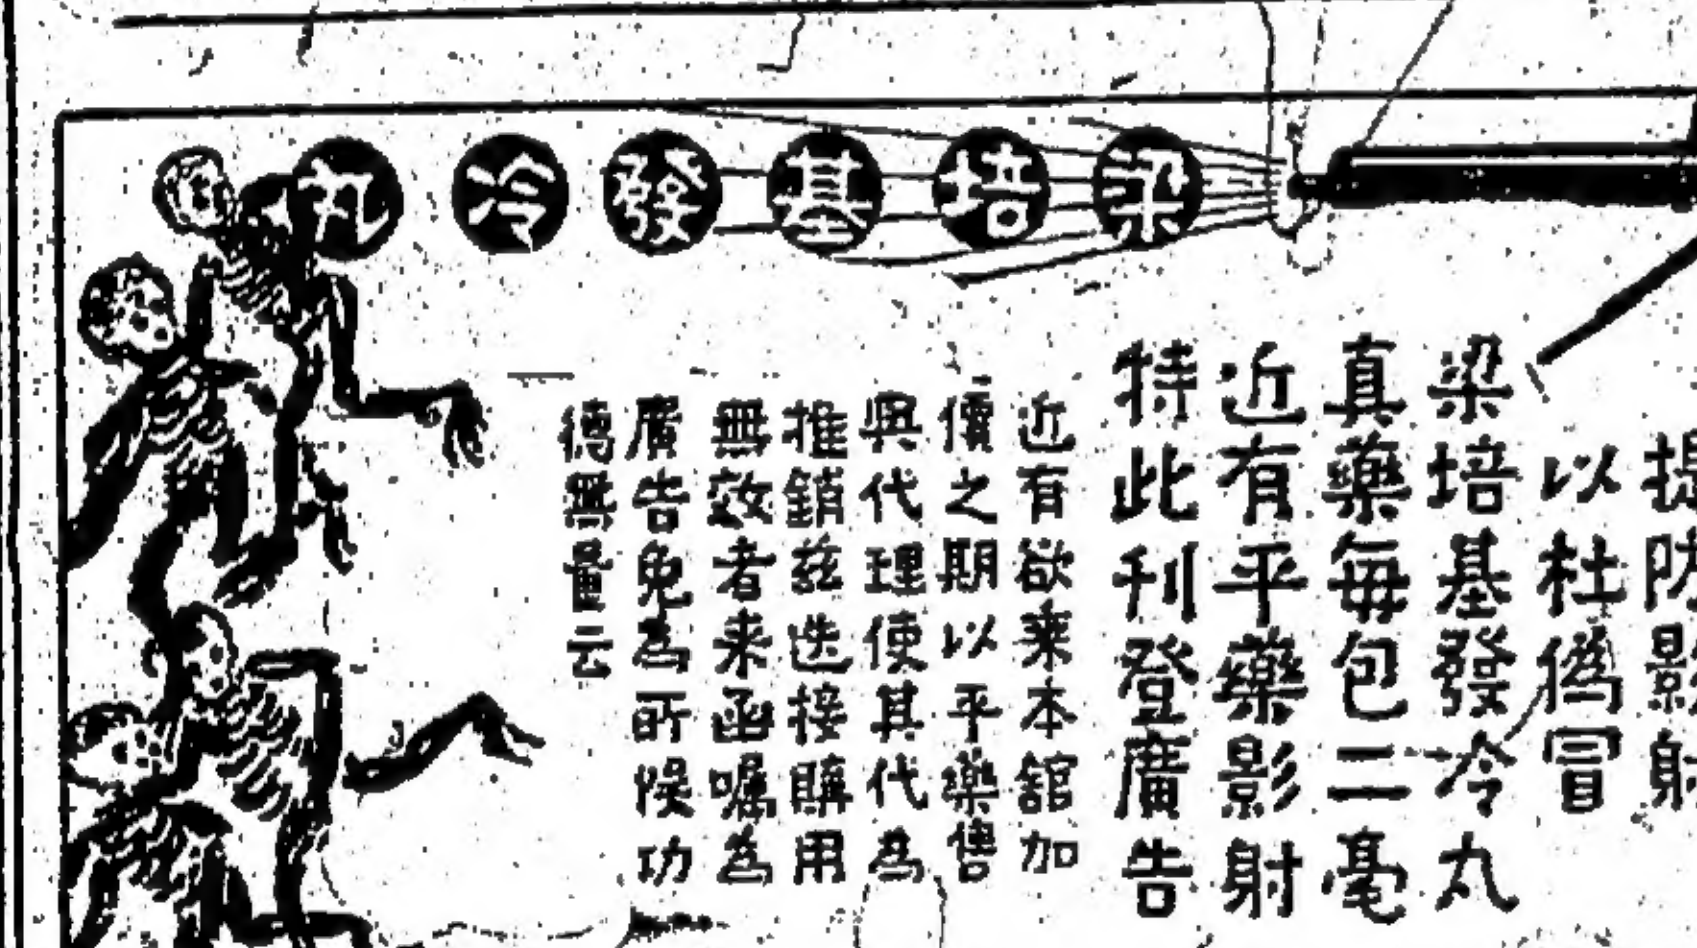 梁培基發冷丸
提防影射
以杜偽冒
梁培基發冷丸
真藥每包二毫
近有平藥影射
特此刊登廣告
近有欲乘本舘加
價之期以平藥售
與代理使其代為
推銷茲迭接購用
無效者来函囑為
廣告免為所悞功
德無量云